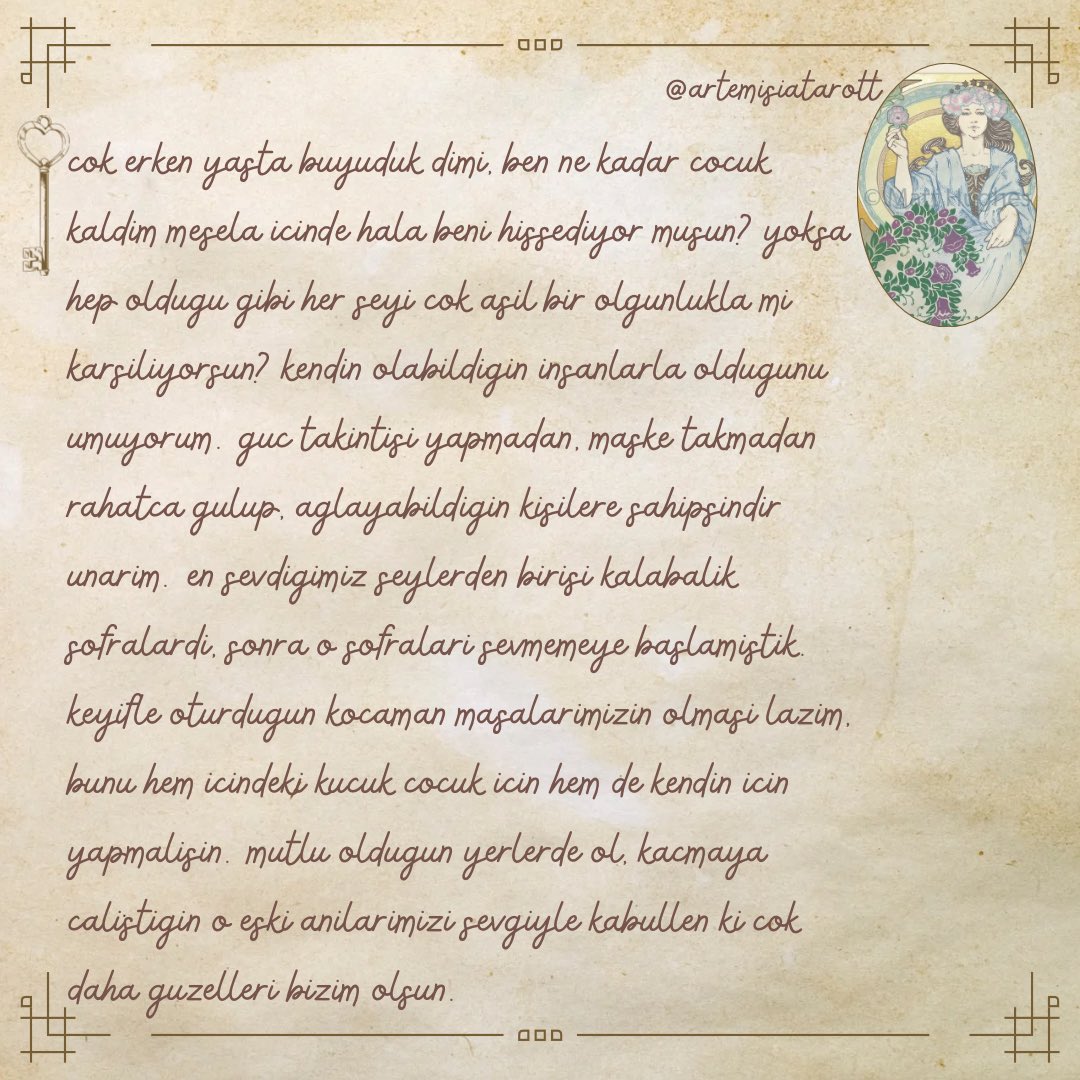 @artemisiatarott
cok erken yasta buyuduk dimi, ben ne kadar cocuk
kaldim mesela icinde hala beni hissediyor musun? yoksa
hep oldugu gibi her seyi cok asil bir olgunlukla mi
karsiliyorsun? kendin olabildigin insanlarla oldugunu
umuyorum. guc takintisi yapmadan, maske takmadan
rahatca gulup, aglayabildigin kisilere sahipsindir
unarim. en sevdigimiz seylerden birisi kalabalik
sofralardi, sonra o sofralari sevmemeye baslamistik.
keyifle oturdugun kocaman masalarimizin olmasi lazim,
bunu hem icindeki kucuk cocuk icin hem de kendin icin
yapmalisin. mutlu oldugun yerlerde ol, kacmaya
calistigin o eski anilarimizi sevgiyle kabullen ki cok
daha guzelleri bizim olsun.